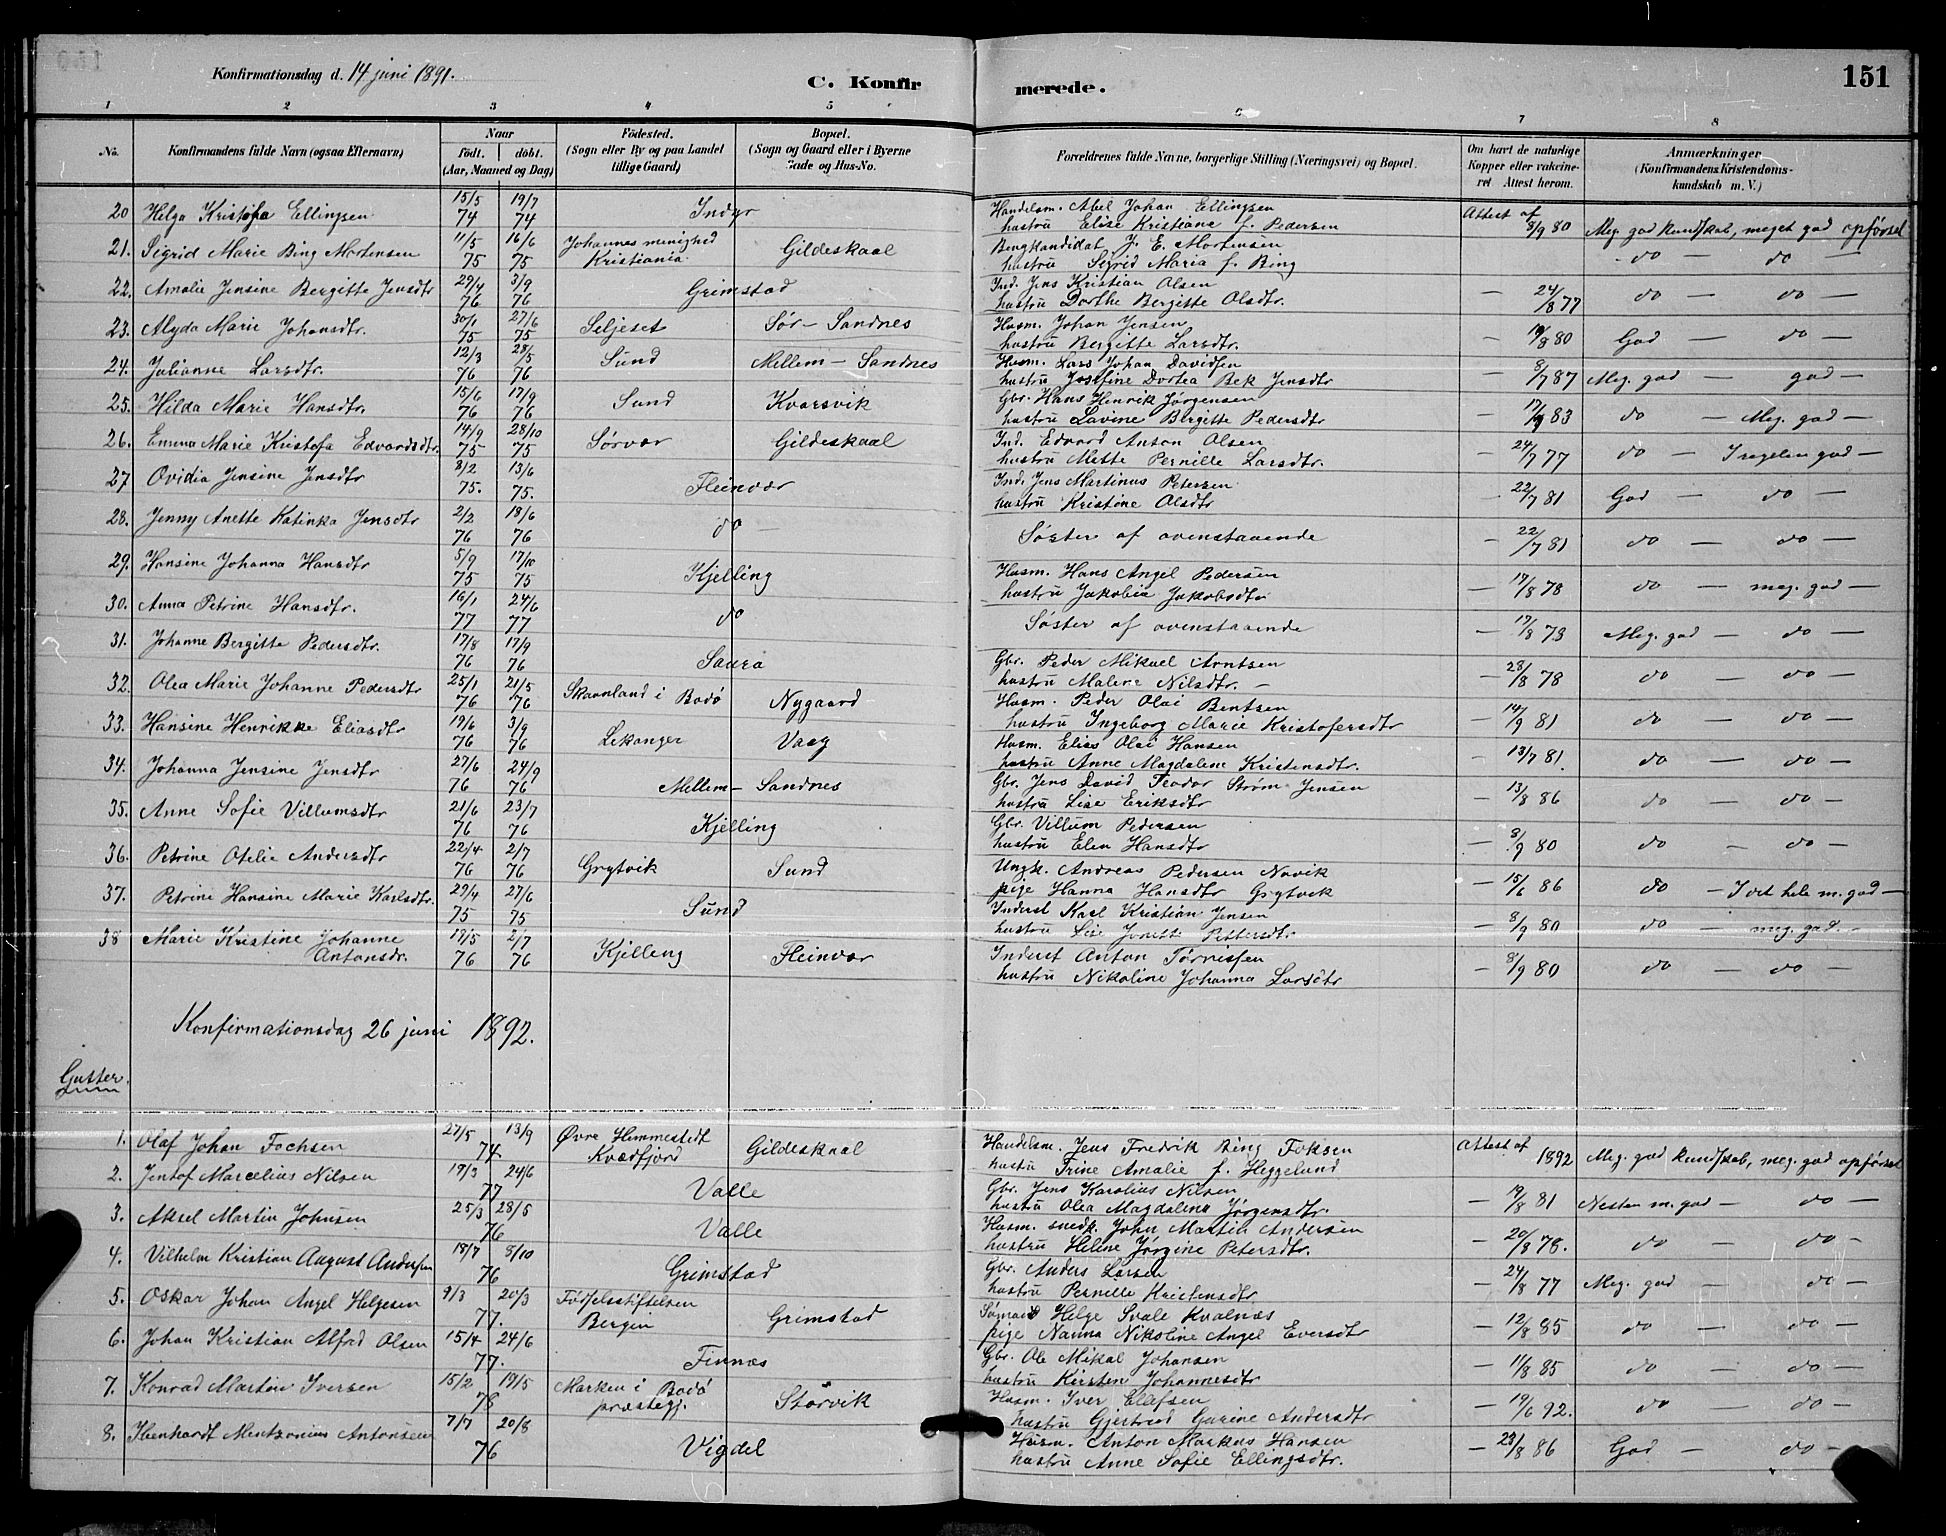 Konfirmationsdag d. 14 juni 1891.
C. Konfirmerede.
151
1 2 3 4 5 6 7 8
No.
Konfirmandens fulde Navn (ogsaa Efternavn)
Naar
födt. döbt.
(Aar, Maaned og Dag)
Födested.
(Sogn eller By og paa Landet tillige Gaard)
Bopæl.
(Sogn og Gaard eller i Byerne Gade og Hus-No.
Forældrenes fulde Navne, borgerlige Stilling (Næringsvei) og Bopæl.
Om havt de naturlige Kopper eller vakcineret Attest herom.
Anmærkninger
(Konfirmandens Kristendomskundskab m. V.)
20 Helga Kristofa Ellingsen 15/5 74 19/7 74 Indyr Handelsm. Abel Johan Ellingsen
hustru Elise Kristiane f. Pedersen Attest af 8/9 80 Meg. god kundskab, meget god opførsel
21. Sigrid Marie Bing Mortensen 11/5 75 16/6 75 Johannes menighed Kristiania. Gildeskaal Bergkandidat J. E. Mortensen
hustru Sigrid Maria f. Bing do — do —
22. Amalie Jensine Bergitte Jensdtr 29/4 76 3/9 76 Grimstad Ind. Jens Kristian Olsen
hustru Dorthe Bergitte Olsdtr. — 24/8 77 do — do —
23. Alyda Marie Johansdtr. 30/1 75 27/6 75 Seljeset Sør-Sandnes Husm. Johan Jensen
hustru Bergitte Larsdtr. — 19/8 80 God — do
24. Julianne Larsdtr. 12/3 76 28/5 76 Sund Mellem-Sandnes Husm. Lars Johan Davidsen
hustru Josefine Dortea Bek Jensdtr — 8/7 87 Meg. god — god —
25. Hilda Marie Hansdtr. 15/6 76 17/9 76 Sund Kvarsvik Gbr. Hans Henrik Jørgensen
hustru Lavine Bergitte Pedersdtr — 17/9 83 do — Meg. god —
26. Emma Marie Kristofa Edvardsdtr. 14/9 75 28/10 75 Sørvær Gildeskaal Ind. Edvard Anton Olsen
hustru Mette Pernille Larsdtr. — 24/7 77 do — I regelen god —
27 Ovidia Jensine Jensdtr 8/2 75. 13/6 75. Fleinvær Ind. Jens Martinus Petersen
hustru Kristine Olsdtr — 22/7 81 God — do —
28. Jenny Anette Katinka Jensdtr 2/2 76 18/6 76 do — Søster af ovenstaaende — 22/7 81 do — do —
29. Hansine Johanna Hansdtr 5/9 75 17/10 75 Kjelling Husm. Hans Angel Pedersen
hustru Jakobia Jakobsdtr — 17/8 78 do — meg. god —
30. Anna Petrine Hansdtr. 16/1 77 24/6 77 do Søster af ovenstaaende — 17/8 78 Meg. god — do —
31. Johanne Bergitte Pedersdtr. 17/8 76 17/9 76 Saura Gbr. Peder Mikael Arntsen
hustru Malene Nilsdtr. — — 28/8 78 do — do —
32. Olea Marie Johanne Pedersdtr 25/1 76 21/5 76 Skavnland i Bodø Nygaard Husm. Peder Olai Bentsen
hustru Ingeborg Marie Kristofersdtr — 14/9 81 do — do —
33. Hansine Henrikke Eliasdtr 19/6 76 3/9 76 Lekanger Vaag Husm. Elias Olai Hansen
hustru Anne Magdalene Kristensdtr. — 13/7 81. do — do —
34. Johanna Jensine Jensdtr 27/6 76 24/9 76 Mellem-Sandnes Gbr. Jens David Teodor Strøm Jensen
hustru Lise Eriksdtr — 13/8 86 do — do —
35. Anne Sofie Villumsdtr 21/6 76 23/7 76 Kjelling Gbr. Villum Pedersen
hustru Elen Hansdtr — 8/9 80 do — do —
36. Petrine Otelie Andersdtr 22/4 76 2/7 76 Grytvik Sund Ungk. Andreas Pedersen Novik
pige Hanna Hansdtr Grytvik — 15/6 86 do — I det hele m. god —
37. Petrine Hansine Marie Karlsdtr. 29/4 75 27/6 75 Sund Inderst Karl Kristian Jensen
hustru Lise Jonette Pettersdtr — 8/9 80 do — meg. god. —
38 Marie Kristine Johanne Antonsdr. 19/5 76 2/7 76 Kjelling Fleinvær Inderst Anton Tørrissen
hustru Nikoline Johanna Larsdtr — 8/9 80 do — do —
Konfirmationsdag 26 juni 1892.
Gutter.
1. Olaf Johan Fochsen 27/5 13/9 74 Øvre Hemmestedt Kvædfjord Gildeskaal Handelsm. Jens Fredrik Bing Foksen
hustu Trine Amalie f. Heggelund Attest af 1892 Meg. god kundskab, meg. god opførsel
2. Jentof Marcelius Nilsen 17/3 24/6 77 Valle Gbr. Jens Karolius Nilsen
hustru Olea Magdalena Jørgensdtr. — 19/8 81 Nesten m. god — do —
3. Aksel Martin Johnsen 25/3 28/5 76 Valle Husm. snedk. John Martin Andersen
hustru Heline Jørgine Petersdtr. — 20/8 78. do — do —
4. Vilhelm Kristian August Andersen 18/7 8/10 76 Grimstad Gbr. Anders Larsen
hustru Pernille Kristensdtr — 24/8 77 Meg. god — do —
5. Oskar Johan Angel Helgesen 9/3 20/3 77. Fødselsstiftelsen Bergen Grimstad Sømand Helge Svale Kvalnæs
pige Nanna Nikoline Angel Eversdtr — 12/8 85 do — do —
6. Johan Kristian Alfred Olsen 15/4 24/6 77. Finnæs Gbr. Ole Mikal Johansen
hustru Kirsten Johannesdtr — 11/8 85 do — do —
7. Konrad Martin Iversen 15/2 19/5 78 Marken i Bodø præstegj. Storvik Husm. Iver Ellefsen
hustru Gjertrud Garine Andersdtr — 19/6 92. do — do —
8. Ebenhardt Mentzonius Antonsen 7/7 20/8 76 Vigdel Husm. Anton Markus Hansen
hustru Anne Sofie Ellingsdtr. — 23/8 86 God — do —